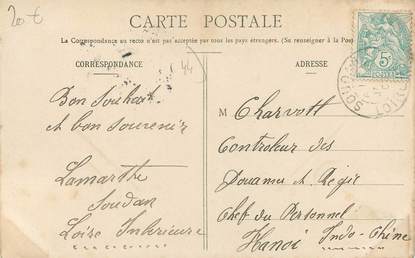 20 €
CARTE POSTALE
La Correspondance au recto n'est pas acceptée par tous les pays étrangers. (Se renseigner à la Poste
CORRESPONDANCE
ADRESSE
44
5c
POSTES
LOIRE
Bon Souhait
et bon souvenir
Lamarthe
Soudan
Loire Inférieure
M Charvott
Controleur des
Douanes et Régie
Chef du Personnel
Hanoi Indo-Chine